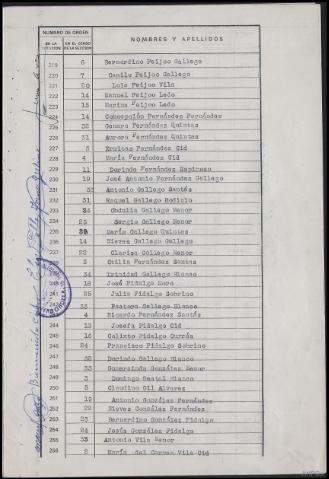 NUMERO DE ORDEN
NOMBRES Y APELLIDOS
EN LA
EN EL CENSO
219 6 Bernardino Feijoo Gallego
220 7 Camilo Feijoo Gallego
221 20 Luis Feijoo Vila
222 14 Manuel Feijoo Ledo
223 15 Marina Feijoo Ledo
224 14 Concepción Fernández Fernández
225 32 Genara Fernández Quintas
226 31 Aurora Fernández Quintas
227 3 Ermitas Fernández Cid
228 4 María Fernández Cid
229 11 Dorinda Fernández Espinosa
230 19 José Antonio Fernández Gallego
231 33 Antonio Gallego Santás
232 31 Raquel Gallego Rodicio
233 24 Obdulia Gallego Menor
234 25 Sergio Gallego Menor
235 29 María Gallego Quintas
236 14 Nieves Gallego Gallego
237 22 Clarisa Gallego Menor
238 3 Otilia Fernández Santas
239 34 Trinidad Gallego Blanco
240 18 José Fidalgo Mera
241 25 Julia Fidalgo Sobrino
33 Pastora Gallego Blanco
4 Ricardo Fernández Santás
244 13 Josefa Fidalgo Cid
245 16 Calixto Fidalgo Currás
246 24 Francisco Fidalgo Sobrino
247 32 Dorindo Gallego Blanco
248 33 Gumersindo González Menor
249 3 Domingo Gestal Blanco
250 5 Claudino Gil Alvarez
251 19 Antonio González Fernández
252 22 Nieves González Fernández
253 23 Bernardino González Fidalgo
254 24 Jesús González Fidalgo
255 33 Antonio Vila Menor
256 2 María del Carmen Vila Cid